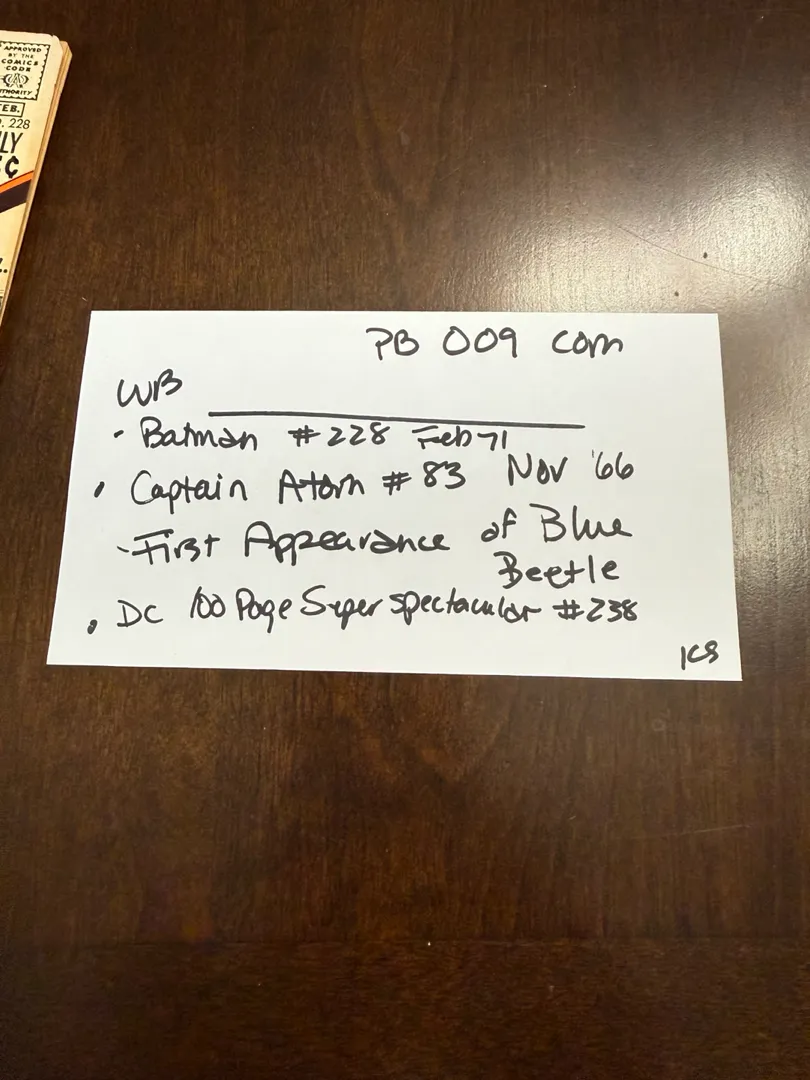 APPROVED
BY THE
COMICS
CODE
AUTHORITY
FEB.
228
LY
¢
PB 009 com
WB
· Batman #228 Feb 71
· Captain Atom #83 Nov '66
-First Appearance of Blue
Beetle
· DC 100 Page Super Spectacular #238